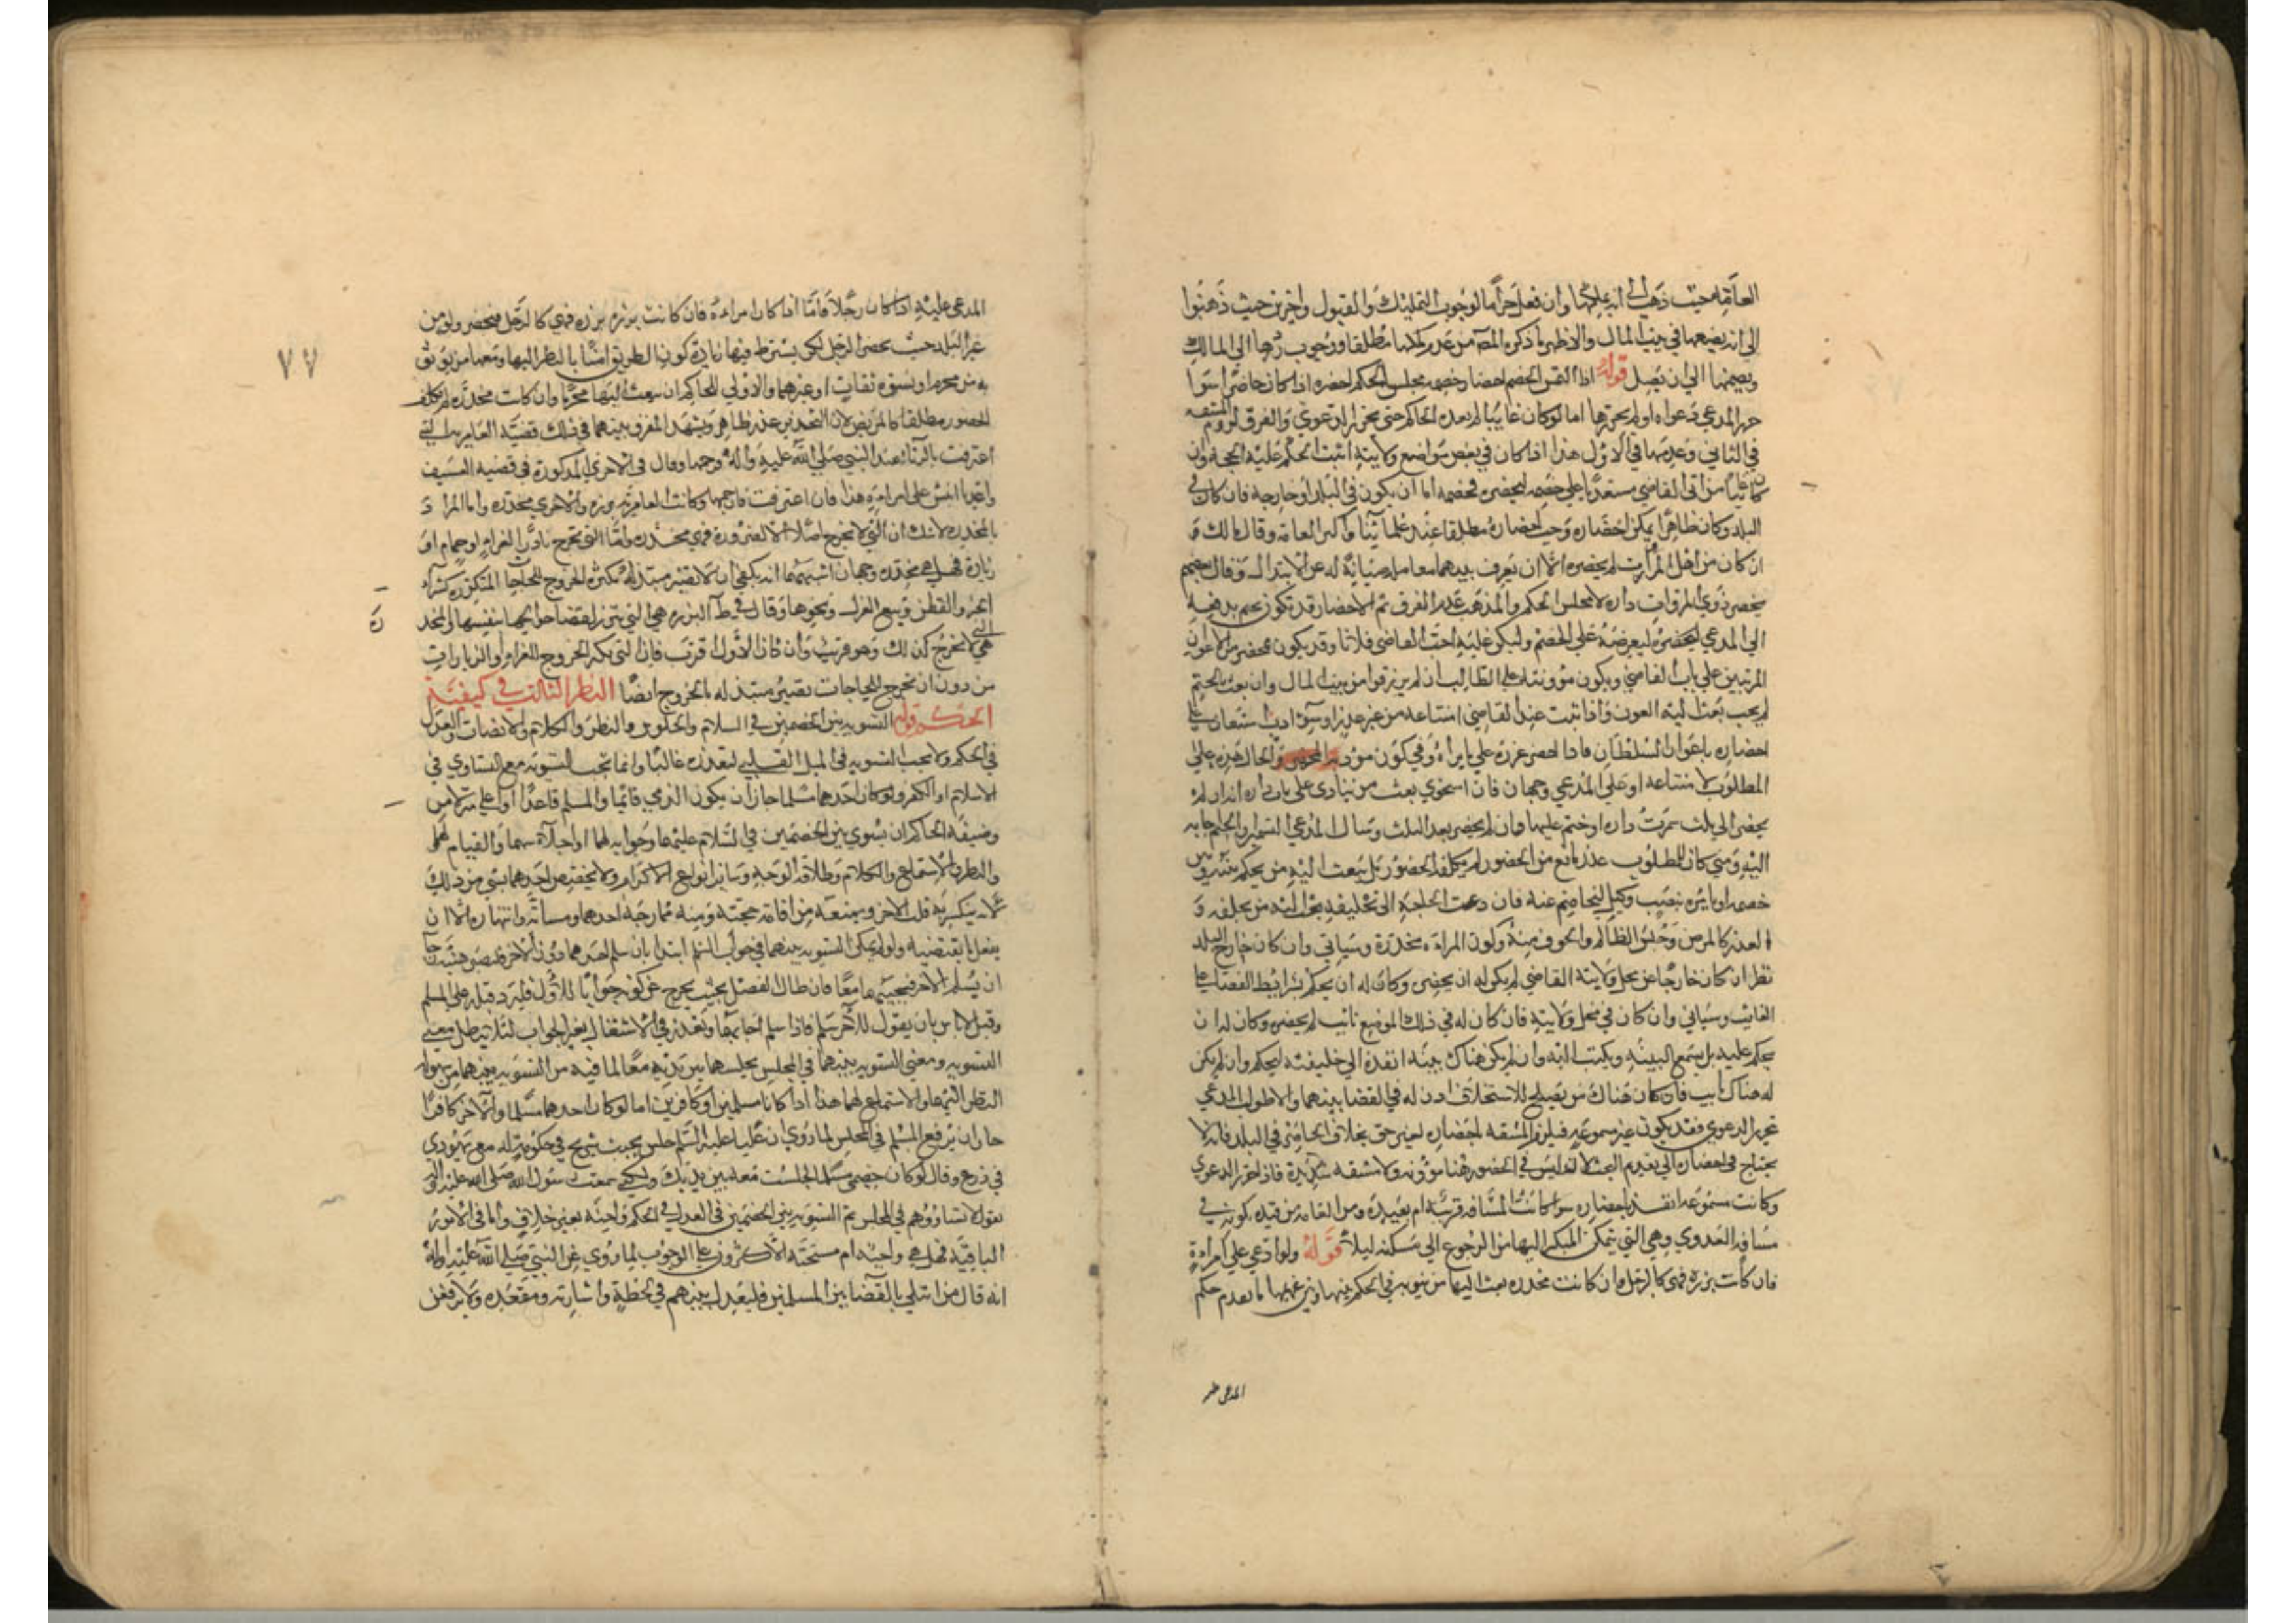 العامة حيث ذهب الى انه يملكها وان فعل حراما لوجوب التمليك والقبول واخرين حيث ذهبوا
الى انه يضعها في بيت المال والاظهر ما ذكره المص من عدم ملكها مطلقا ووجوب ردها الى المالك
ويضمنها الى ان يصل قوله اذا التمس الخصم احضار خصمه مجلس الحكم احضره اذا كان حاضرا سوا
حرر المدعي دعواه او لم يحررها اما لو كان غايبا لم يعده الحاكم حتى يحرر الدعوى والفرق لزوم المشقه
في الثاني وعدمها في الاول هذا اذا كان في بعض مواضع ولايته اثبت الحكم عليه بالحجه وان
كان غايبا من اتى القاضي مستعديا على خصمه ليحضره فخصمه اما ان يكون في البلد او خارجه فان كان في
البلد وكان ظاهرا يمكن احضاره وجب احضاره مطلقا عند علمائنا واكثر العامة وقال مالك
ان كان من اهل المروات لم يحضره الا ان يعرف بينهما معامله صيانة له عن الابتذال وقال بعضهم
يحضر ذوي المروات داره لا مجلس الحكم والمذهب عدم الفرق ثم الاحضار قد تكون بختم يدفعه
الى المدعي ليحضره ليعرضه على الخصم وليكن عليه اجب القاضي فلانا وقد يكون بمحضر من الاعوان
المرتبين على باب القاضي ويكون مؤونته على الطالب ان لم يرزقوا من بيت المال وان بعث بالختم
لم يجب بعث اليه العون واذا ثبت عند القاضي امتناعه من غير عذر او سوء ادب استعان على
احضاره باعوان السلطان فاذا احضر عزره على ما يراه وفي كون مؤونة المحضر والحال هذه على
المطلوب لامتناعه او على المدعي وجهان فان استخفى بعث من ينادى على باب داره انه ان لم
يحضر الى ثلث سمرت داره او ختم عليها فان لم يحضر بعد الثلث وسال المدعي التسمير والختم اجابه
اليه ومتى كان للمطلوب عذر مانع من الحضور لم يكلف الحضور بل يبعث اليه من يحكم بينه وبين
خصمه او يامره بنصب وكيل ليخاصم عنه فان دعت الحاجة الى تحليفه بعث اليه من يحلفه و
العذر كالمرض وحبس الظالم والخوف منه وكون المراة مخدرة وسياتي وان كان خارج البلد
نظر ان كان خارجا عن محل ولاية القاضي لم يكن له ان يحضره وكان له ان يحكم بشرايط القضا على
الغايب وسياتي وان كان في محل ولايته فان كان له في ذلك الموضع نائب لم يحضره وكان له ان
يحكم عليه بل يسمع البينة ويكتب اليه وان لم يكن هناك بينة انفذه الى خليفته ليحكم وان لم يكن
له هناك نايب فان كان هناك من يصلح للاستخلاف اذن له في القضا بينهما والا طولب المدعي
تحرير الدعوى فقد يكون غير مسموعه فيلزم المشقه باحضاره لغير حق بخلاف الحاضر في البلد فانه لا
يحتاج في احضاره الى تقديم البحث لانه ليس في الحضور هنا مؤونه ولا مشقه شديدة فاذا حرر الدعوى
وكانت مسموعه انفذ باحضاره سواء كانت المسافة قريبة ام بعيدة ومن العامة من قيده بكونه في
مسافة العدوى وهي التي يتمكن المبكر اليها من الرجوع الى مسكنه ليلا قوله ولو ادعى على امراءة
فان كانت برزة فهي كالرجل وان كانت مخدرة بعث اليها من ينوبه في الحكم بينها وبين غريمها ما تقدم حكم
المدعى عليه
٧٧
المدعى عليه اذا كان رجلا فاما اذا كان امراءة فان كانت برزة فهي كالرجل فيحضر ولو من
غير البلد حيث يحضر الرجل لكن يشترط فيها زيادة كون الطريق امنا بالنظر اليها ومعها من يوثق
به من محرم او نسوة ثقات او غيرهما والاولى للحاكم ان يبعث اليها محرما وان كانت مخدرة لم تكلف
الحضور مطلقا كالمريض لان التخدير عذر ظاهر ويشهد للفرق بينهما في ذلك قضية الغامدية التي
اعترفت بالزنا عند النبي صلى الله عليه واله فرجمها وقال في الاخرى المذكورة في قضيه العسيف
واغد يا انيس على امراءة هذا فان اعترفت فارجمها وكانت الغامدية برزة والاخرى مخدرة واما المراد
بالمخدرة لا شك ان التي لا تخرج اصلا الا لضرورة فهي مخدرة واما التي تخرج نادرا لعزاء او حمام او
زيارة فهل هي مخدرة وجهان اشبههما انه يكفي ان لا تصير مبتذلة بكثرة الخروج للحاجات المتكررة كشراء
الخبز والقطن وبيع الغزل ونحوها وقال في ط البرزة هي التي تبرز لقضاء حوايجها بنفسها والمخد
رة
هي التي لا تخرج كذلك وهو قريب وان كان الاول اقرب فان التي تكثر الخروج للعزاء او الزيارات
من دون ان تخرج للحاجات تصير مبتذلة بالخروج ايضا النظر الثالث في كيفية
الحكم قوله التسوية بين الخصمين في السلام والجلوس والنظر والكلام والانصات والعدل
في الحكم ولا تجب التسوية في الميل القلبي لتعذره غالبا وانما تجب التسوية مع التساوي في
الاسلام او الكفر ولو كان احدهما مسلما جاز ان يكون الذمي قائما والمسلم قاعدا او اعلى منزلا من
وضيفة الحاكم ان يسوي بين الخصمين في السلام عليهما وجوابه لهما واجلاسهما والقيام لهما
والنظر والاستماع والكلام وطلاقة الوجه وسائر انواع الاكرام ولا يخصص احدهما بشي من ذلك
لانه ينكسر به قلب الاخر ويمنعه من اقامة حجته ومنه ممازحة احدهما ومسارته وانتهاره الا ان
يفعل ما يقتضيه ولو لم يمكن التسوية بينهما في جواب السلم ابتدا بان سلم احدهما دون الاخر فليصبر هنيئة رجا
ان يسلم الاخر فيجيبهما معا فان طال الفصل بحيث يخرج عن كونه جوابا للاول فليرد قبله على المسلم
وقيل لا باس بان يقول للاخر سلم فاذا سلم اجابهما ويعذر في الاشتغال بغير الجواب لئلا يبطل معنى
التسوية ومعنى التسوية بينهما في المجلس يجلسهما بين يديه معا لما فيه من التسوية بينهما من سهولة
النظر اليهما والاستماع لهما هذا اذا كانا مسلمين او كافرين اما لو كان احدهما مسلما والاخر كافرا
جاز ان يرفع المسلم في المجلس لما روي ان عليا عليه السلم جلس بجنب شريح في حكومة له مع يهودي
في درع وقال لو كان خصمي مسلما لجلست معه بين يديك ولكني سمعت رسول الله صلى الله عليه واله
يقول لا تساووهم في المجلس ثم التسوية بين الخصمين في العدل في الحكم واجبة بغير خلاف واما في الامور
الباقية فهل هي واجبة ام مستحبة الاكثرون على الوجوب لما روي عن النبي صلى الله عليه واله
انه قال من ابتلي بالقضا بين المسلمين فليعدل بينهم في لحظه واشارته ومقعده ولا يرفعن